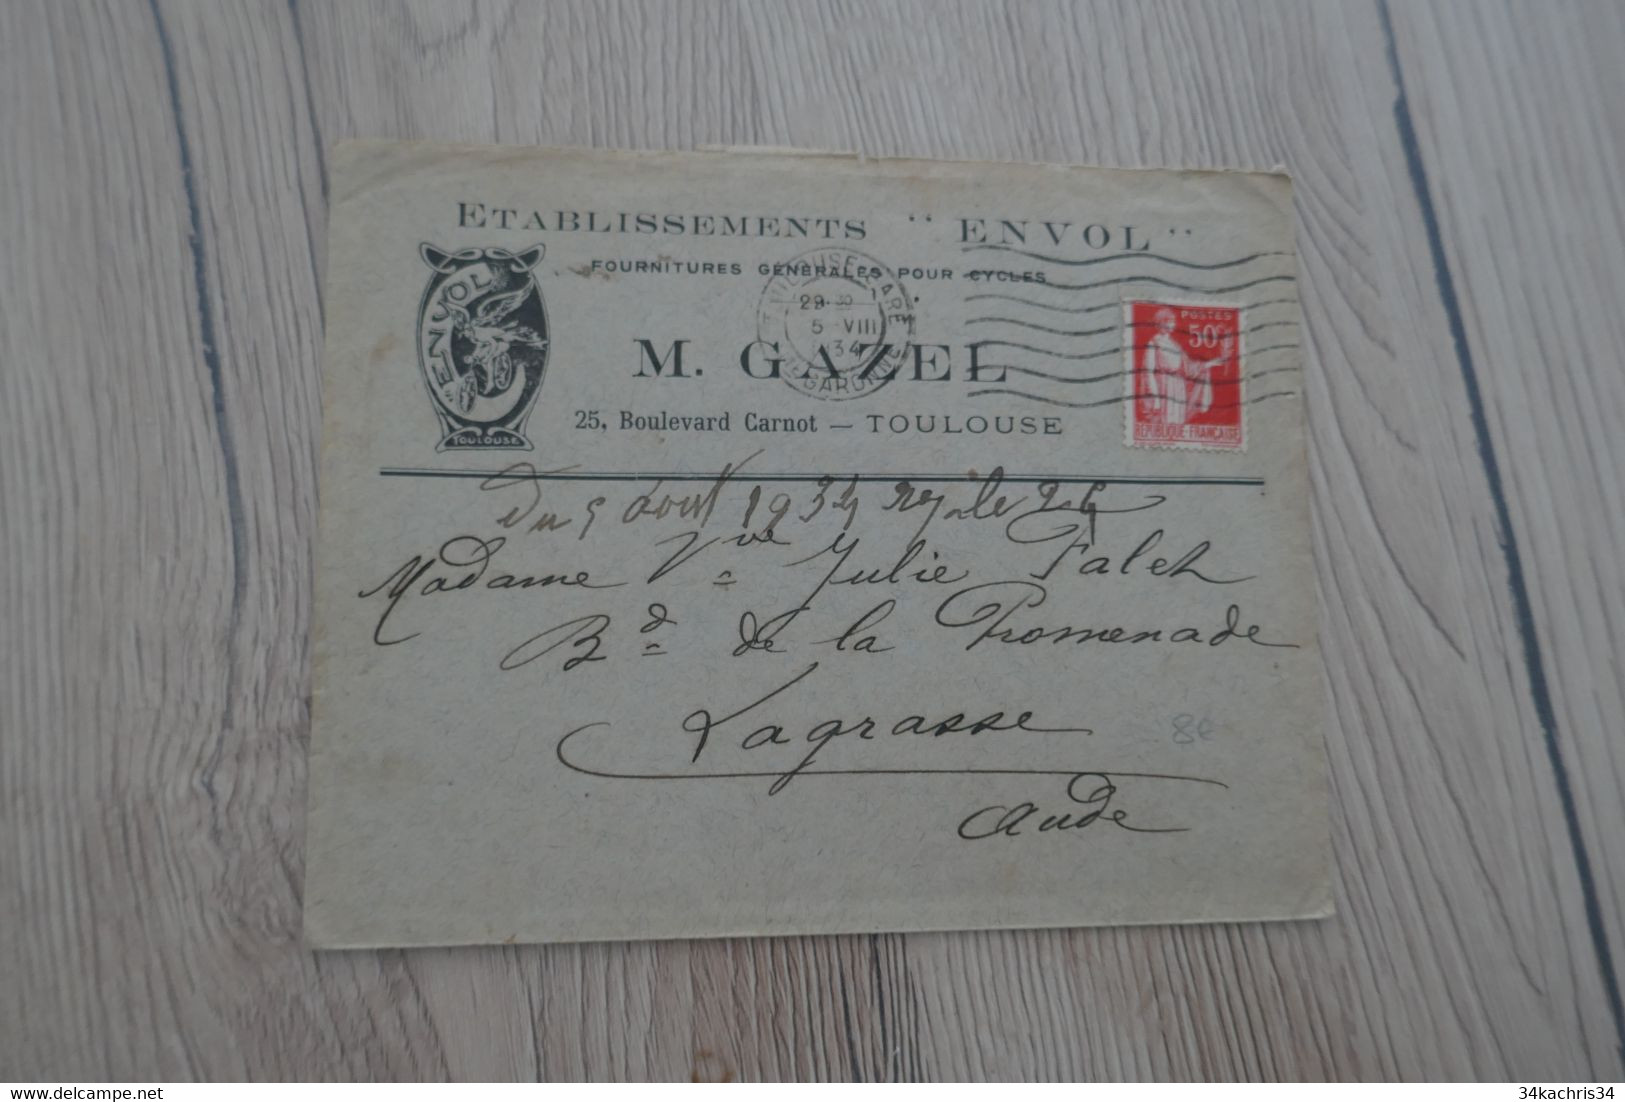 ETABLISSEMENTS " ENVOL "
FOURNITURES GÉNÉRALES POUR CYCLES
"ENVOL"
TOULOUSE
M. GAZEL
25, Boulevard Carnot — TOULOUSE
TOULOUSE GARE
5 VIII
34
Hte GARONNE
POSTES
50c
REPUBLIQUE-FRANÇAISE
Du 5 aout 1934 le
Madame Vve Julie Falch
Bd de la Promenade
Lagrasse
8€
Aude
delcampe.net
34kachris34